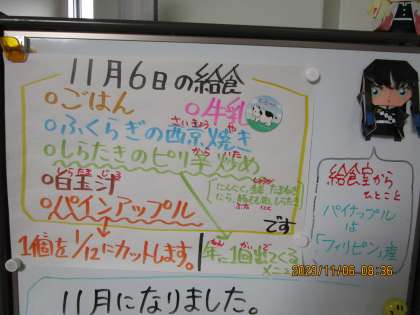 11月6日の給食
○ごはん
○牛乳
さいきょう や
○ふくらぎの西京焼き
から いた
○しらたきのピリ辛炒め
しらたま じる
○白玉汁
○パインアップル
です
1個を1/12にカットします。
年に1回出てくる
メニュー
給食室から
ひとこと
パイナップル
は
「フィリピン」産
11月になりました。
2023/11/06 08:36